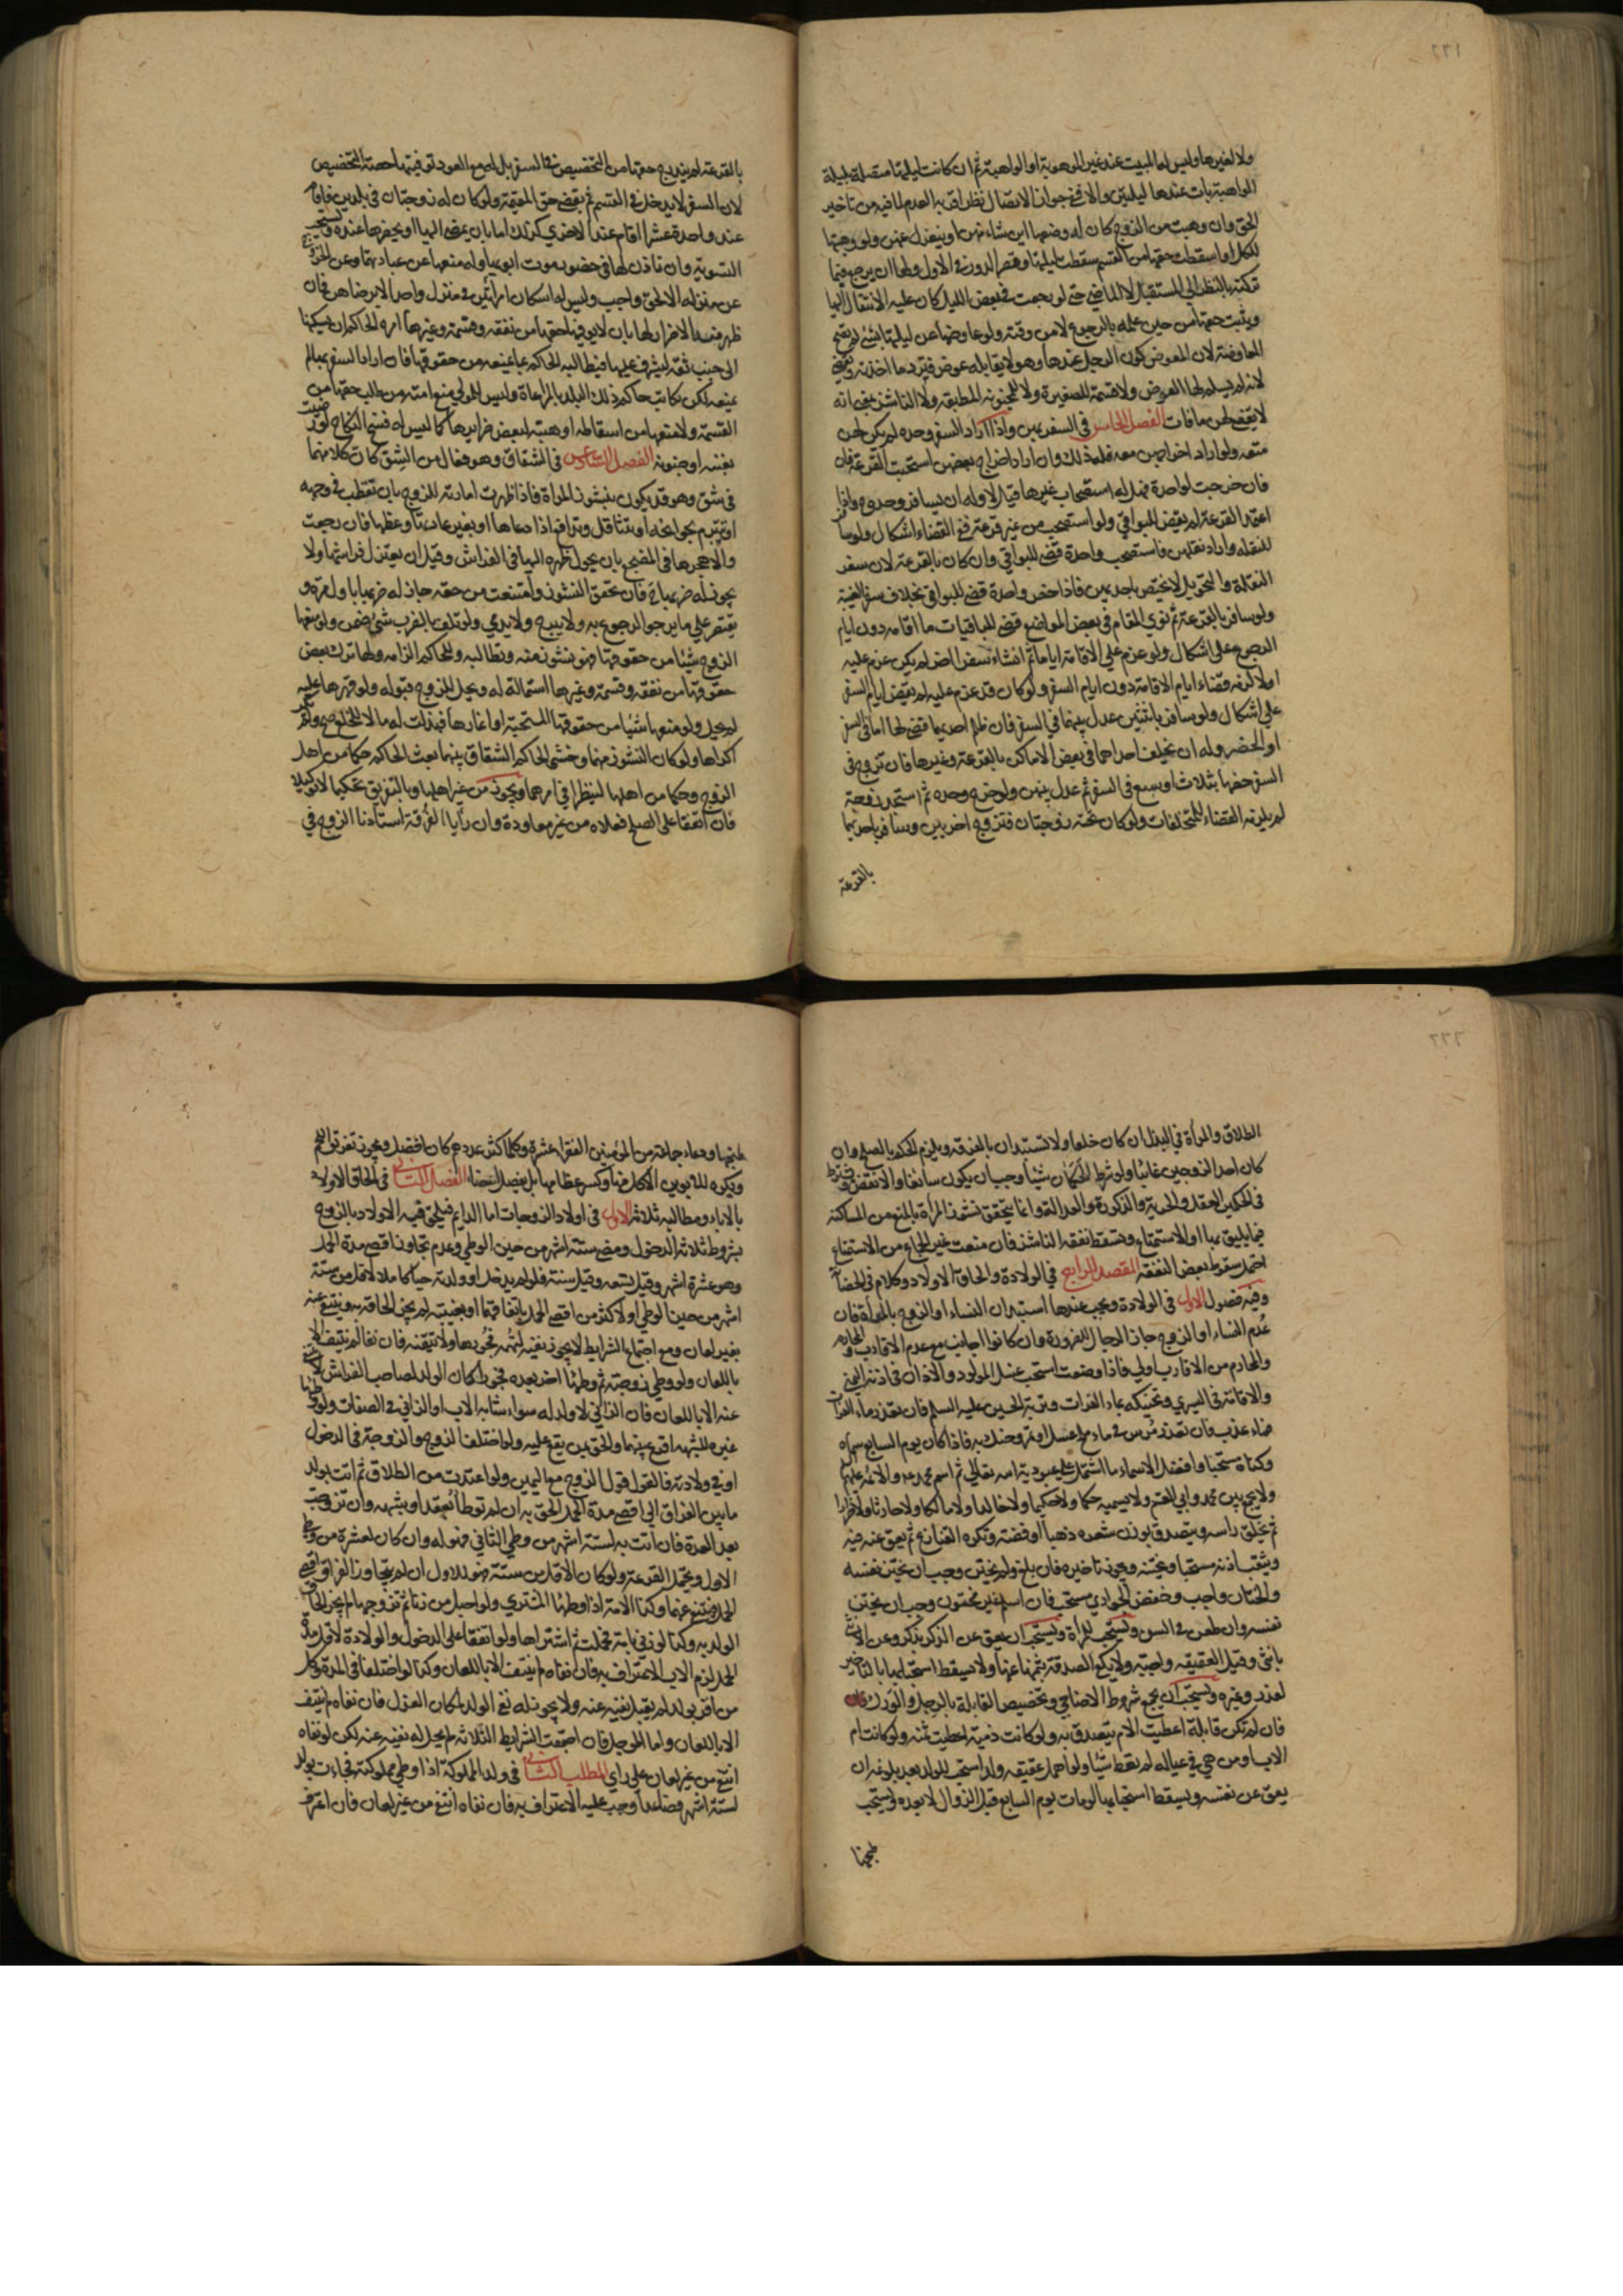 ٢٢١
ولا لغيرها وليس لها المبيت عند غير الموهوبة او الواهبة ثم ان كانت ليلتها متصلة بليلة
الواهبة بات عندها ليلتين والا ففي جواز الاتصال نظر اقربه العدم لما فيه من تاخير
الحق وان وهبت من الزوج كان له وضعها اين شاء منهن او ينعزل عنهن ولو وهبتها
للكل او اسقطت حقها من القسم سقطت ليلتها وقصر الدور في الاول ولها ان يرجع فيما
تركته بالنظر الى المستقبل لا الماضي حتى لو رجعت في بعض الليل كان عليه الانتقال اليها
ويثبت حقها من حين علمه بالرجوع لا من وقته ولو عاوضها عن ليلتها بشيء لم تصح
المعاوضة لان المعوض كون الرجل عندها وهو لا يقابله عوض فترد ما اخذته ويقضي
لانه لم يسلم لها العوض ولا قسمة للصغيرة ولا للمجنونة المطبقة ولا الناشز بمعنى انه
لا يقضي لهن ما فات الفصل الخامس في السفر بهن واذا اراد السفر وحده لم يكن لهن
منعه ولو اراد اخراجهن معه فله ذلك وان اراد اخراج بعضهن استحبت القرعة فان
فان خرجت لواحدة فهل له استصحاب غيرها قيل لا وله ان يسافر وحده واذا
اعتمد القرعة لم يقض للبواقي ولو استصحب من غير قرعة ففي القضاء اشكال ولو سافر
للنقلة واراد نقلهن فاستصحب واحدة قضى للبواقي وان كان بالقرعة لان سفر
النقلة والتحويل لا يختص باحديهن فاذا خص واحدة قضى للبواقي بخلاف سفر الغيبة
ولو سافر بالقرعة ثم نوى المقام في بعض المواضع قضى للباقيات ما اقامه دون ايام
الرجوع على اشكال ولو عزم على الاقامة اياما ثم انشاء سفر اخر لم يكن عزم عليه
اولا لزمه قضاء ايام الاقامة دون ايام السفر ولو كان قد عزم عليه لم يقض ايام السفر
على اشكال ولو سافر باثنتين عدل بينهما في السفر فان ظلم احديهما قضى لها اما في السفر
او الحضر وله ان يخلف احداهما في بعض الاماكن بالقرعة وغيرها فان تزوج في
السفر خصها بثلاث او سبع في السفر ثم عدل بينهن ولو خرج وحده ثم استجد زوجة
لم يلزمه القضاء للمتخلفات ولو كان تحته زوجتان فتزوج اخريين وسافر باحديهما
بالقرعة
بالقرعة لم يندرج حقها من التخصيص في السفر بل له مع العود توفيتها حصة التخصيص
لان السفر لا يدخل في القسم ثم يقضي حق المقيمة ولو كان له زوجتان في بلدين فاقام
عند واحدة عشرا اقام عند الاخرى كذلك اما بان يمضي اليها او يحضرها عنده ويستحب
التسوية وان ناذن لها في حضور موت ابويها وله منعها عن عيادتهما وعن الخروج
عن منزله الا لحق واجب وليس له اسكان امراتين في منزل واحد الا برضاهن فان
ظهر منه الاضرار لها بان لا يوفيها حقها من نفقة وقسمة وغيرها امره الحاكم ان يسكنها
الى جنب ثقة ليشرف عليها فيطالبه الحاكم بما يمنعه من حقوقها فان اراد السفر بها لم
يمنعه لكن يكاتب حاكم ذلك البلد بالمراعاة وليس للمولى منع امته من طلب حقها من
القسمة ولا منعها من اسقاطه او هبته لبعض ضرايرها كما ليس له فسخ النكاح لو رضيت
بعننه او جنونه الفصل السادس في الشقاق وهو فعال من الشق كان كلا منهما
في شق وهو قد يكون بنشوز المراة فاذا ظهرت امارته للزوج بان تقطب في وجهه
او تتبرم بحوائجه او تتثاقل وتدافع اذا دعاها او بغير عادتها وعظها فان رجعت
والا هجرها في المضجع بان يحول ظهره اليها في الفراش وقيل ان يعتزل فراشها ولا
يجوز له ضربها ح فان تحقق النشوز وامتنعت من حقه جاز له ضربها باول مرة و
يقتصر على ما يرجو الرجوع به ولا يبرح ولا يدمي ولو تلف بالضرب شيء ضمن ولو منعها
الزوج شيئا من حقوقها فهو نشوز منه وتطالبه وللحاكم الزامه ولها ترك بعض
حقوقها من نفقة وقسمة وغيرها استمالة له ويحل للزوج قبوله ولو قهرها عليه
لم يحل ولو منعها شيئا من حقوقها المستحبة او اغارها فبذلت له مالا للخلع صح ولم يكن
اكراها ولو كان النشوز منهما وخشي الحاكم الشقاق بينهما بعث الحاكم حكما من اهل
الزوج وحكما من اهلها لينظرا في امرهما ويجوز من غير اهلهما وبالتفريق تحكيما لا توكيلا
فان اتفقا على الصلح فعلاه من غير معاودة وان رأيا الفرقة استاذنا الزوج في
٢٢٢
الطلاق والمراة في البذل ان كان خلعا ولا تستبدان بالفرقة ويلزم الحكم بالصلح وان
كان احد الزوجين غائبا ولو شرط الحكمان شيئا وجب ان يكون سائغا والا نقض ويشترط
في الحكمين العقل والحرية والذكورة والعدالة وانما يتحقق نشوز المراة بالمنع من المساكنة
فيما يليق بها او الاستمتاع وتسقط نفقة الناشز فان منعت غير الجماع من الاستمتاع
احتمل سقوط بعض النفقة المقصد الرابع في الولادة والحاق الاولاد وكلام في الحضانة
وفيه فصول الاول في الولادة ويجب عندها استبداد النساء او الزوج بالمراة فان
عدم النساء او الزوج جاز الرجال للضرورة وان كانوا اجانب مع عدم الاقارب والمحارم
والمحارم من الاقارب اولى فاذا وضعت استحب غسل المولود والاذان في اذنه اليمنى
والاقامة في اليسرى وتحنيكه بماء الفرات وتربة الحسين عليه السلم فان تعذر ماء الفرات
فماء عذب فان تعذر مرس في ماء ملح عسل او تمر وحنك به فاذا كان يوم السابع سماه
وكناه مستحبا وافضل الاسماء ما اشتمل على عبودية الله تعالى ثم اسم محمد وعلي والائمة عليهم
ولا يجمع بين محمد وابي القسم ولا يسميه حكما ولا حكيما ولا خالدا ولا مالكا ولا حارثا ولا ضرارا
ثم يحلق راسه ويتصدق بوزن شعره ذهبا او فضة وتكره القنازع ثم يعق عنه فيه
ويثقب اذنه مستحبا ويختنه ويجوز تاخيره فان بلغ ولم يختن وجب ان يختن نفسه
والختان واجب وخفض الجواري مستحب فان اسلم غير مختون وجب ان يختن
نفسه وان طعن في السن ويستحب للمراة ويستحب ان يعق عن الذكر بذكر وعن الانثى
بانثى وقيل العقيقه واجبة ولا يكفي الصدقة بثمنها عنها ولا يسقط استحبابها بالتاخير
لعذر وغيره ويستحب ان يجمع شروط الاضاحي وتخصيص القابلة بالرجل والورك فان
فان لم تكن قابلة اعطيت الام يتصدق به ولو كانت ذمية اعطيت ثمنه ولو كانت ام
الاب او من هي في عياله لم يعط شيئا ولو اهمل عقيقة ولده استحب للولد بعد بلوغه ان
يعق عن نفسه ويسقط استحبابها لو مات يوم السابع قبل الزوال لا بعده ويستحب
طبخها
طبخها ودعاء جماعة من المؤمنين الفقراء عشرة وكلما كثر عددهم كان افضل ويجوز تفرقة اللحم
ويكره للابوين الاكل منها وكسر عظامها بل يفصل اعضاء الفصل الثاني في الحاق الاولاد
بالاباء ومطالبه ثلاثة الاول في اولاد الزوجات اما الدايم فيلحق فيه الاولاد بالزوج
بشروط ثلاثة الدخول ومضي ستة اشهر من حين الوطي وعدم تجاوز اقصى مدة الحمل
وهو عشرة اشهر وقيل تسعه وقيل سنة فلو لم يدخل او ولدته حيا كاملا لاقل من ستة
اشهر من حين الوطي او لاكثر من اقصى الحمل باتفاقهما او بغيبته لم يجز الحاقه به وينتفي عنه
بغير لعان ومع اجتماع الشرايط لا يجوز نفيه لتهمه فجورها ولا تيقنه فان نفاه لم ينتف الا
باللعان ولو وطي زوجته ثم وطئها اخر بعده فجورا كان الولد لصاحب الفراش لا ينتفي
عنه الا باللعان فان الزاني لا ولد له سواء شابه الاب او الزاني في الصفات ولو وطئها
غيره للشبهه اقرع بينهما والحق بمن يقع عليه ولو اختلف الزوج والزوجة في الدخول
او في ولادته فالقول قول الزوج مع اليمين ولو اعتدت من الطلاق ثم اتت بولد
ما بين الفراق الى اقصى مدة الحمل الحق به ان لم توطأ بعقد او بشبهه وان تزوجت
بعد العدة فان اتت به لستة اشهر من وطي الثاني فهو له وان كان لعشرة من وطي
الاول ويحتمل القرعة ولو كان لاقل من ستة فهو للاول ان لم يتجاوز الفراق اقصى
الحمل فينتفي عنهما وكذا الامة اذا وطئها المشتري ولو احبل من زنا ثم تزوجها لم يجز الحاق
الولد به وكذا لو زنى بامة فحملت ثم اشتراها ولو اتفقا على الدخول والولادة لاقل مدة
الحمل لزم الاب الاعتراف به فان نفاه لم ينتف الا باللعان وكذا لو اختلفا في المدة وكل
من اقر بولد لم يقبل نفيه عنه ولا يجوز له نفي الولد لمكان العزل فان نفاه لم ينتف
الا باللعان واما المؤجل فان اجتمعت الشرايط الثلاثة لم يحل له نفيه عنه لكن لو نفاه
انتفى من غير لعان على راي المطلب الثاني في ولد المملوكة اذا وطي مملوكته فجاءت بولد
لستة اشهر فصاعدا وجب عليه الاعتراف به فان نفاه انتفى من غير لعان فان اعترف